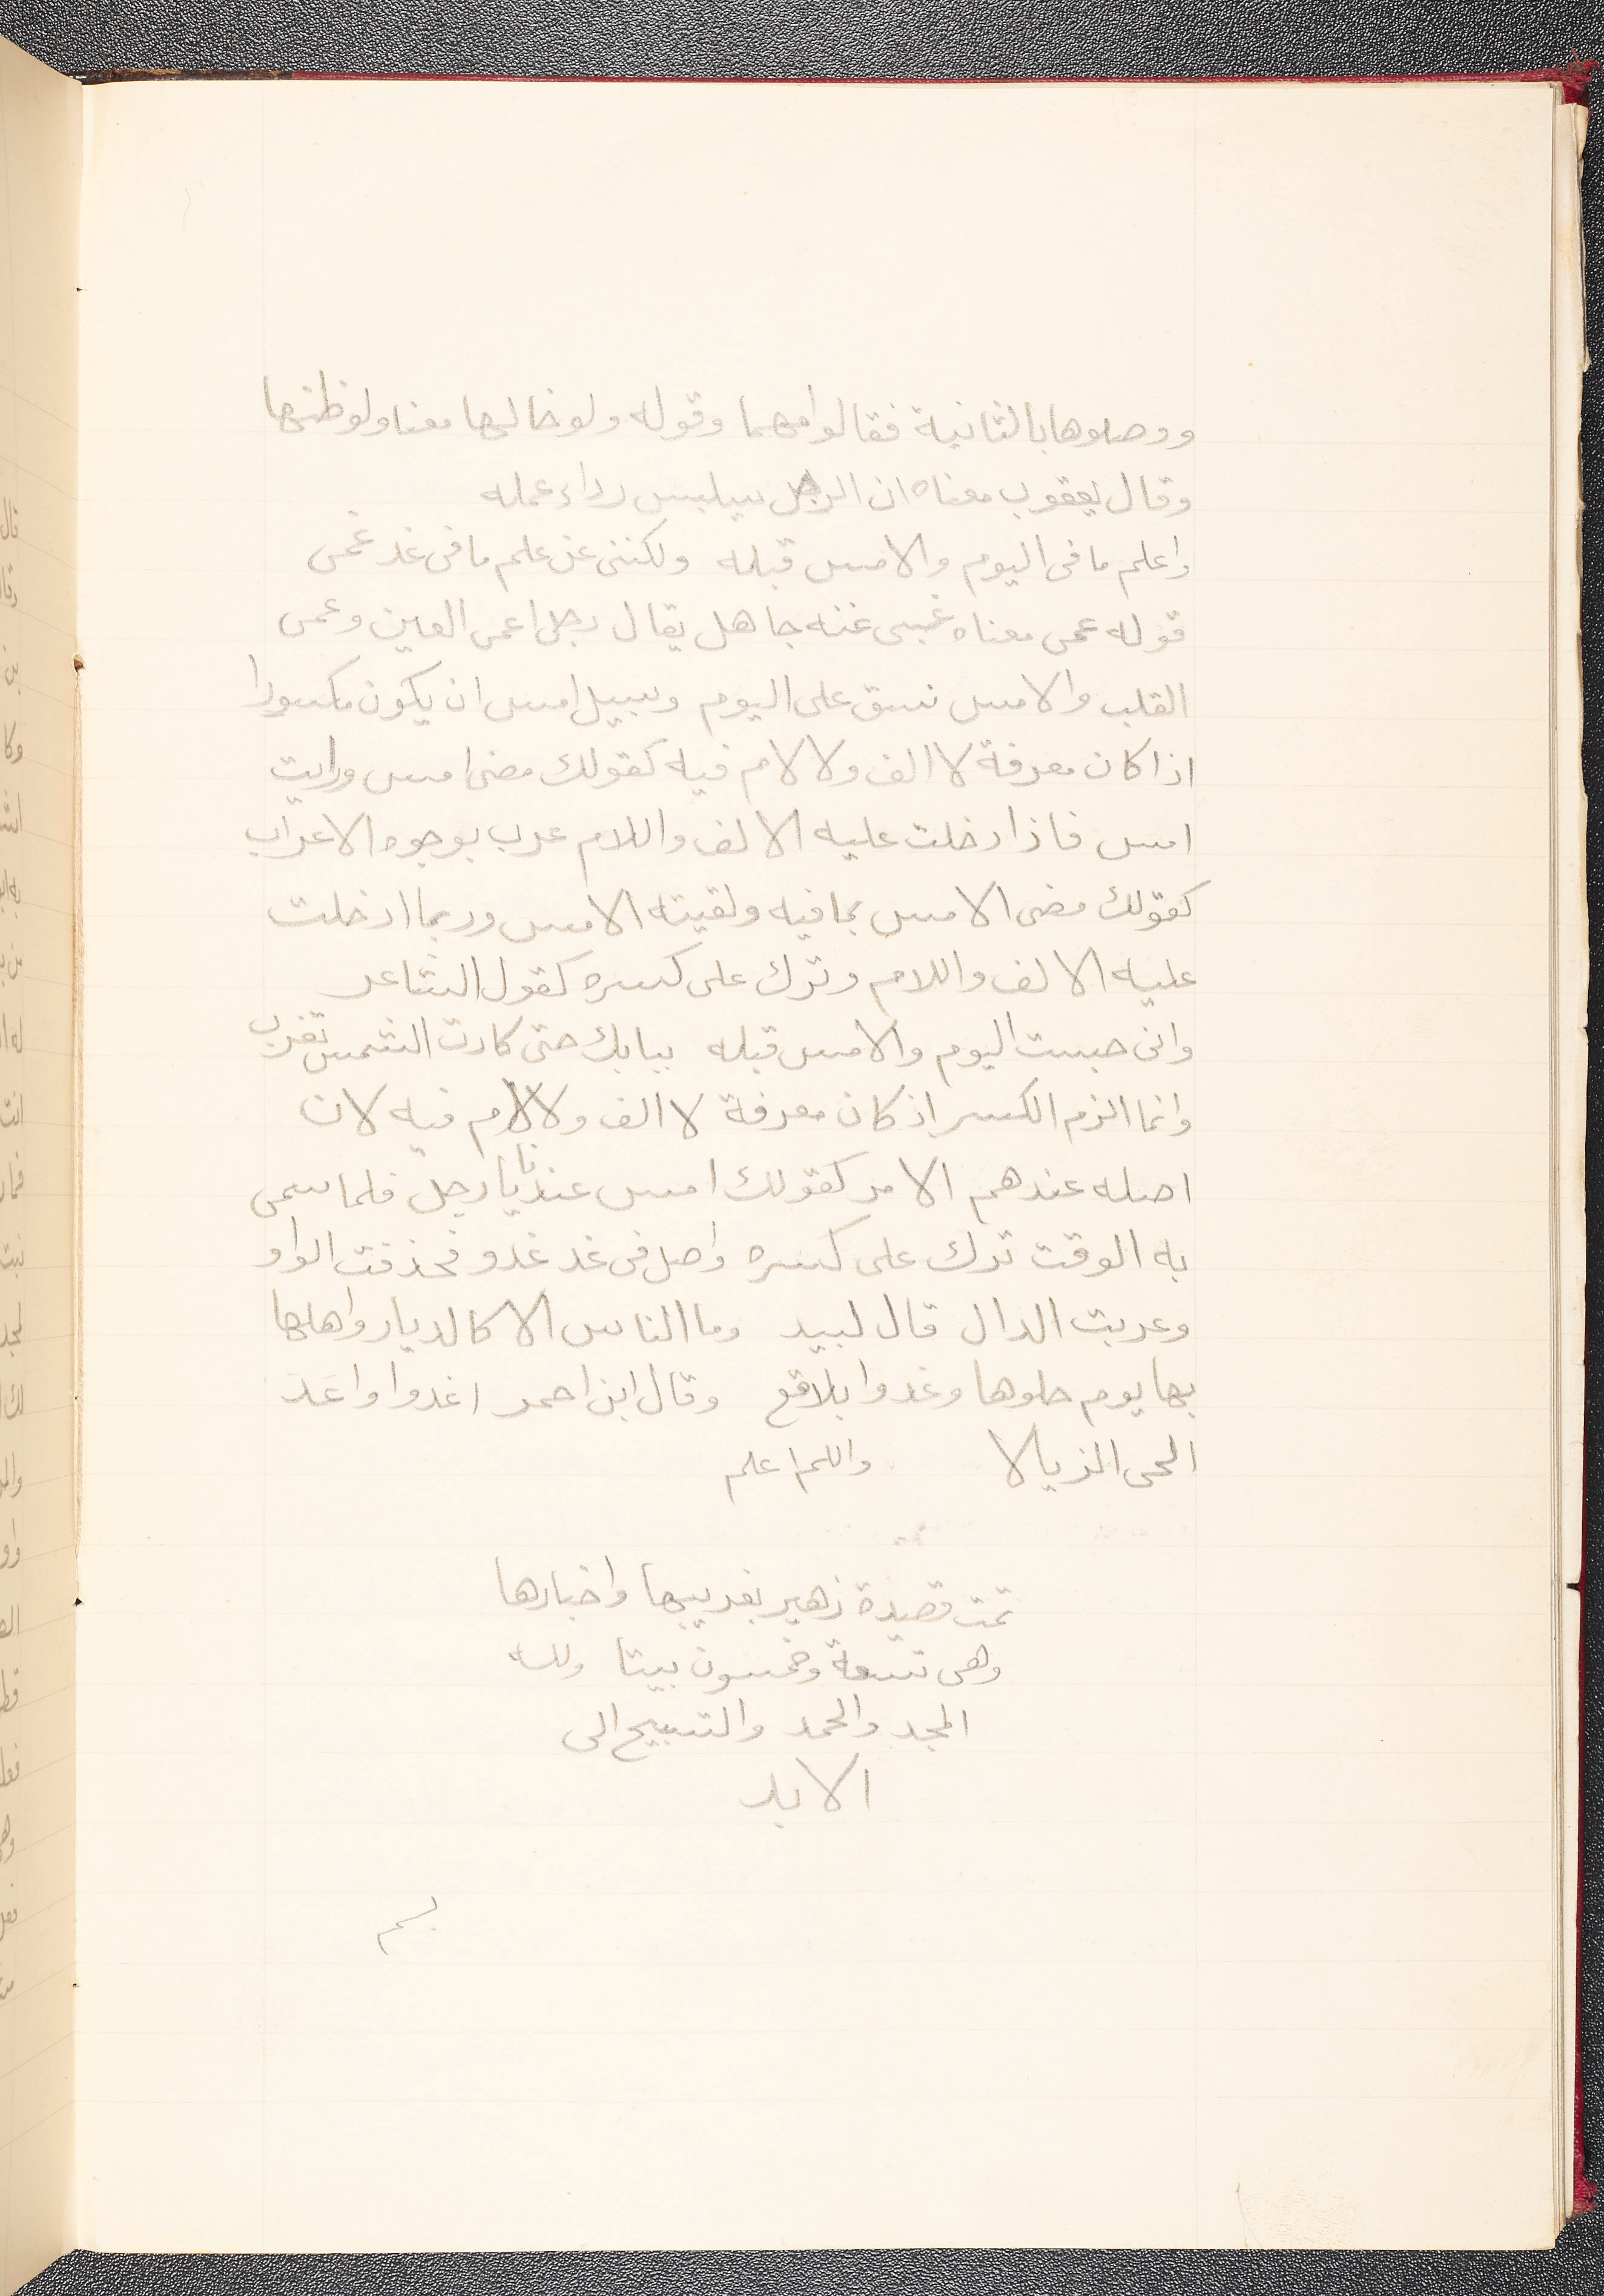 ووصلوها بالثانية فقالوا مهما وقوله ولو خالها معنا ولو ظنها
وقال يعقوب معناه ان الرجل سيلبس رداء عمله
واعلم ما فى اليوم والامس قبله ولكننى عن علم ما فى غد عمى
قوله عمى معناه غبى عنه جاهل يقال رجل اعمى العين وعمى
القلب والامس نسق على اليوم وسبيل امس ان يكون مكسورا
اذا كان معرفة لا الف ولا لام فيه كقولك مضى امس ورايت
امس فاذا دخلت عليه الالف واللام عرب بوجوه الاعراب
كقولك مضى الامس بما فيه ولقيته الامس وربما ادخلت
عليه الالف واللام وترك على كسره كقول الشاعر
وانى حبست اليوم والامس قبله ببابك حتى كادت الشمس تغرب
وانما الزم الكسر اذ كان معرفة لا الف ولا لام فيه لان
اصله عندهم الامر كقولك امس عندنا يا رجل فلما سمى
به الوقت ترك على كسره واصل فى غد غدو فحذفت الواو
وعربت الدال قال لبيد وما الناس الا كالديار واهلها
بها يوم حلوها وغدوا بلاقع وقال ابن احمر اغدوا واعد
الحى الزيالا والله اعلم
تمت قصيدة زهير بغريبها واخبارها
وهى تسعة وخمسون بيتا ولله
المجد والحمد والتسبيح الى
الابد
بسم